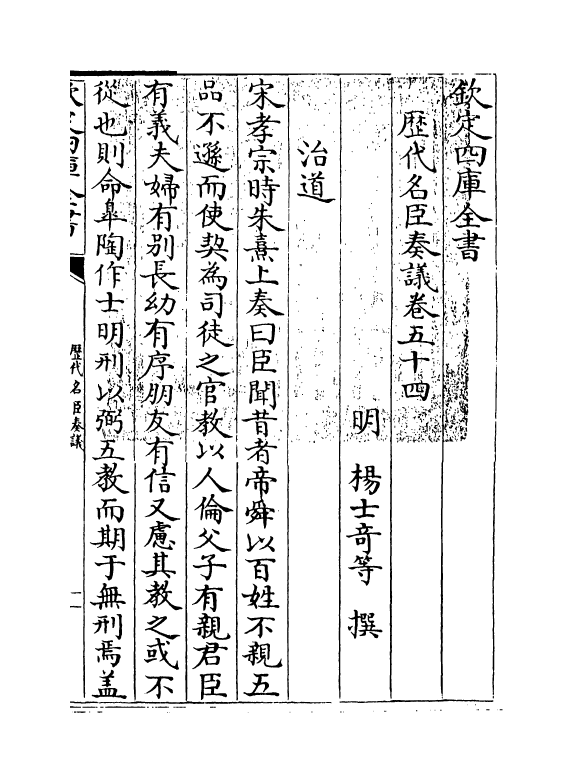 欽定四庫全書
歴代名臣奏議卷五十四
明 楊士竒等 撰
治道
宋孝宗時朱熹上奏曰臣聞昔者帝舜以百姓不親五
品不遜而使契為司徒之官教以人倫父子有親君臣
有義夫婦有别長幼有序朋友有信又慮其教之或不
從也則命臯陶作士明刑以弼五教而期于無刑焉盖
欽定四庫全書
歴代名臣奏議